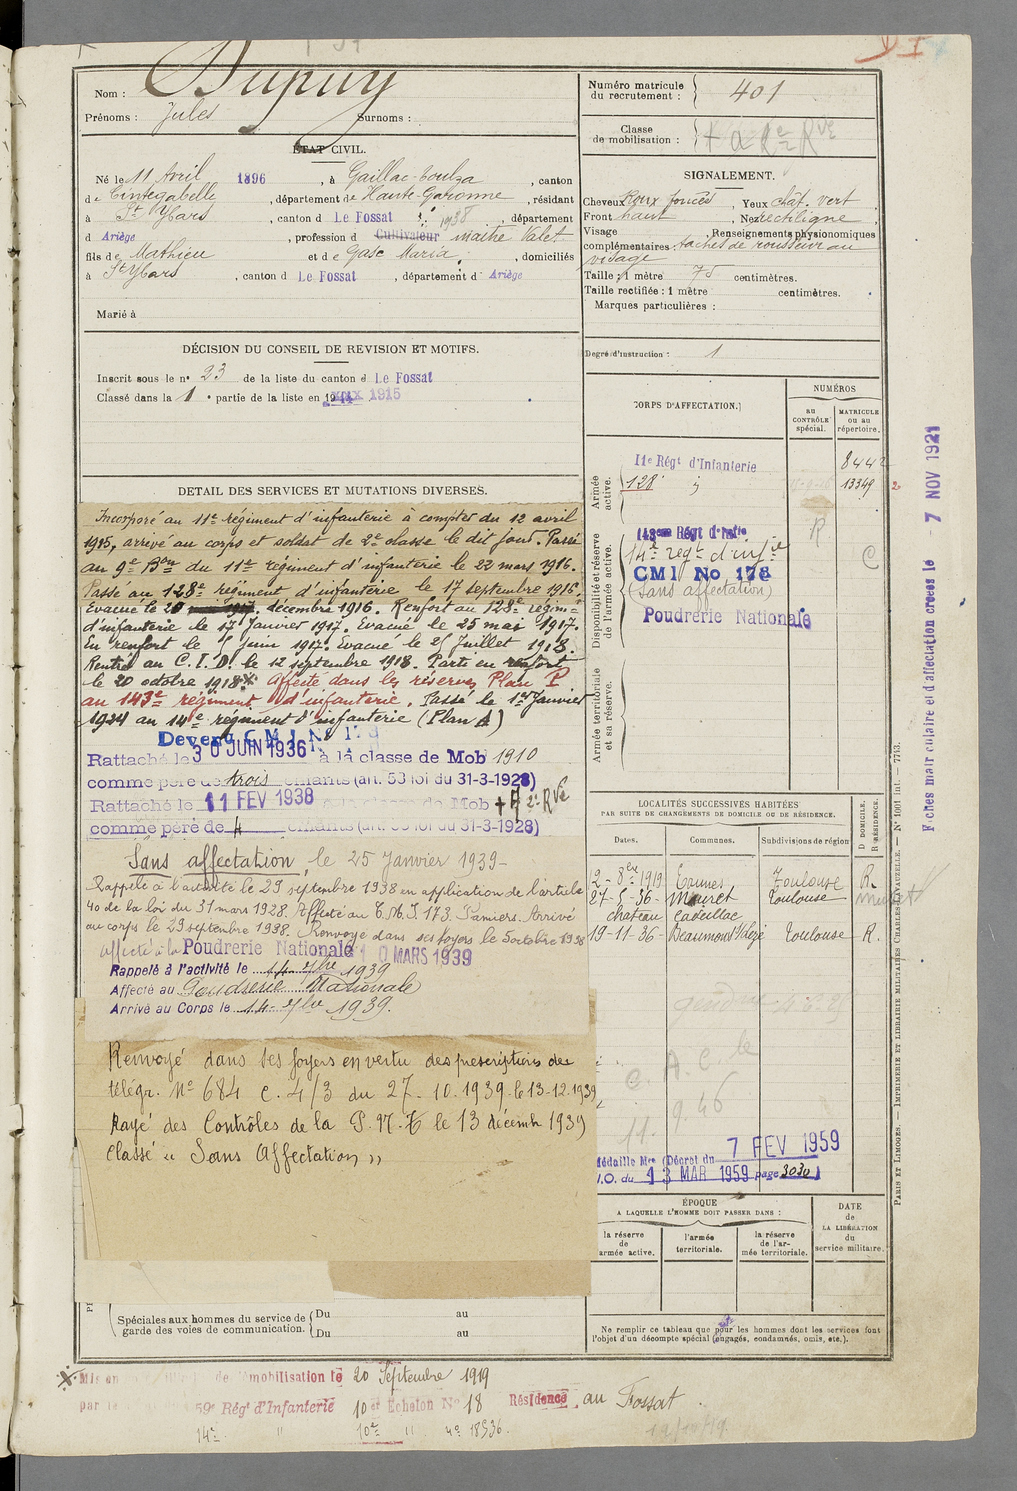 Nom : Dupuy
Prénoms : Jules Surnoms :
Numéro matricule du recrutement : 401
Classe de mobilisation :
ÉTAT CIVIL.
Né le 11 Avril 1896, à Gaillac-Toulza, canton
de Cintegabelle, département de Haute-Garonne, résidant
à St Ybars, canton d Le Fossat 1938, département
d Ariège, profession d Cultivateur maitre Valet
fils de Mathieu et de Gasc Maria, domiciliés
à St Ybars, canton d Le Fossat, département d Ariège
Marié à
SIGNALEMENT.
Cheveux Roux foncés, Yeux chat. vert
Front haut, Nez rectiligne
Visage , Renseignements physionomiques
complémentaires : taches de rousseur au
visage
Taille : 1 mètre 75 centimètres.
Taille rectifiée : 1 mètre centimètres.
Marques particulières :
Degré d'instruction : 1
DÉCISION DU CONSEIL DE REVISION ET MOTIFS.
Inscrit sous le n° 23 de la liste du canton d Le Fossat
Classé dans la 1e partie de la liste en 1915
DETAIL DES SERVICES ET MUTATIONS DIVERSES.
Incorporé au 11e régiment d'infanterie à compter du 12 avril
1915, arrivé au corps et soldat de 2e classe le dit jour. Passé
au 9e Bon du 11e régiment d'infanterie le 22 mars 1916.
Passé au 128e régiment d'infanterie le 17 septembre 1916.
Evacué le 20 décembre 1916. Renfort au 128e régime
d'infanterie le 17 Janvier 1917. Evacué le 25 mai 1917.
En renfort le 5 juin 1917. Evacué le 25 Juillet 1918.
Rentré au C.I.D. le 12 septembre 1918. Parti en renfort
le 20 octobre 1918. Affecté dans les réserves Plan P
au 143e régiment d'infanterie. Passé le 1er Janvier
1924 au 14e régiment d'infanterie (Plan A)
Devenu C M I No 173
Rattaché le 30 JUIN 1936 à la classe de Mob 1910
comme père de trois enfants (art. 58 loi du 31-3-1928)
Rattaché le 11 FEV 1938 à la classe de Mob
comme père de 4 enfants (art. 58 loi du 31-3-1928)
Sans affectation, le 25 Janvier 1939-
Rappelé à l'activité le 29 septembre 1938 en application de l'article
40 de la loi du 31 mars 1928. Affecté au C.M.I. 173. Pamiers. Arrivé
au corps le 29 septembre 1938. Renvoyé dans ses foyers le 5 octobre 1938
affecté à la Poudrerie Nationale 10 MARS 1939
Rappelé à l'activité le 14 7bre 1939
Affecté au Poudrerie Nationale
Arrivé au Corps le 14 7bre 1939.
Renvoyé dans ses foyers en vertu des prescriptions de
télégr. No 684 C. 4/3 du 27. 10. 1939. le 13-12-1939
Rayé des Contrôles de la P.N.T le 13 décembre 1939
Classé « Sans Affectation »
CORPS D'AFFECTATION.
NUMÉROS
AU CONTRÔLE spécial.
MATRICULE OU AU répertoire.
Armée active.
11e Régt d'Infanterie 8442
128e 13349
Disponibilité et réserve de l'armée active.
143eme Régt d'Infie
14e régt d'infie
CMI No 173
(sans affectation)
Poudrerie Nationale
R
C
Armée territoriale et sa réserve.
LOCALITÉS SUCCESSIVES HABITÉES
PAR SUITE DE CHANGEMENTS DE DOMICILE OU DE RÉSIDENCE.
Dates. Communes. Subdivisions de région D DOMICILE. R RÉSIDENCE.
2-8bre 1919 Eaunes Toulouse R.
27-5-36- Muret Toulouse
chateau Cadeillac
19-11-36- Beaumont s/Lèze Toulouse R.
C. A. C. le
11. 9. 46
Médaille Mre (Décret du 7 FEV 1959
J.O. du 13 MAR 1959 page 3030)
ÉPOQUE
A LAQUELLE L'HOMME DOIT PASSER DANS :
la réserve de armée active.
l'armée territoriale.
la réserve de l'armée territoriale.
DATE de LA LIBÉRATION du service militaire.
Spéciales aux hommes du service de garde des voies de communication. Du au
Du au
Ne remplir ce tableau que pour les hommes dont les services font
l'objet d'un décompte spécial (engagés, condamnés, omis, etc.).
démobilisation le 20 Septembre 1919
59e Régt d'Infanterie 10e Echelon No 18 Résidence au Fossat
14e " 10e " no 18536
Fiches matriculaire et d'affectation créées le 7 NOV 1921
PARIS ET LIMOGES. — IMPRIMERIE ET LIBRAIRIE MILITAIRES CHARLES-LAVAUZELLE. — N° 1001 int. — 7743.